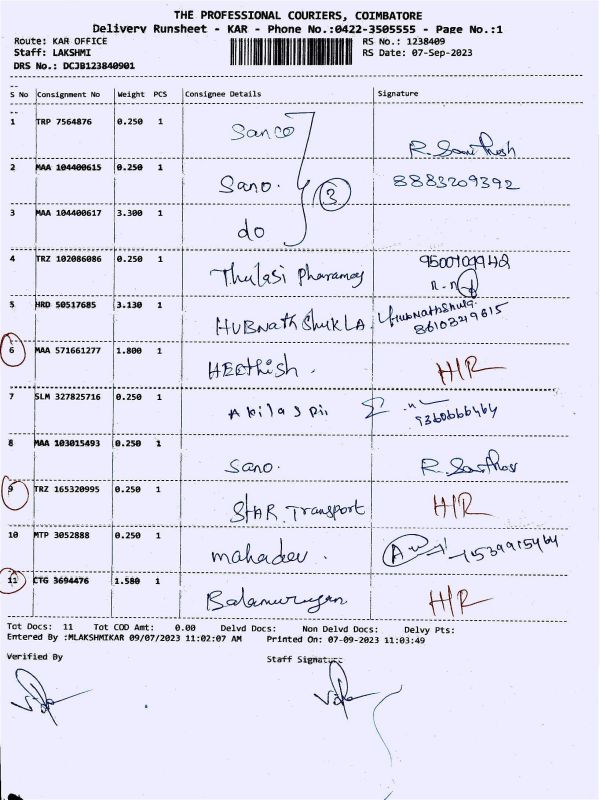 THE PROFESSIONAL COURIERS, COIMBATORE
Delivery Runsheet - KAR - Phone No.:0422-3505555 - Page No.:1
Route: KAR OFFICE RS No.: 1238409
Staff: LAKSHMI RS Date: 07-Sep-2023
DRS No.: DCJB123840901
S No Consignment No Weight PCS Consignee Details Signature
1 TRP 7564876 0.250 1 Sanco R. Santhosh
2 MAA 104400615 0.250 1 Sano. 3 8883209392
3 MAA 104400617 3.300 1 do
4 TRZ 102086086 0.250 1 Thulasi Pharamay
5 HRD 50517685 3.130 1 HUBnath ShukLA 8610349615
6 MAA 571661277 1.800 1 HEEthish. H/R
7 SLM 327825716 0.250 1
8 MAA 103015493 0.250 1 Sano.
9 TRZ 165320995 0.250 1 STAR Transport H/R
10 MTP 3052888 0.250 1 mahadev.
11 CTG 3694476 1.580 1 Balamurugan H/R
Tot Docs: 11 Tot COD Amt: 0.00 Delvd Docs: Non Delvd Docs: Delvy Pts:
Entered By :MLAKSHMIKAR 09/07/2023 11:02:07 AM Printed On: 07-09-2023 11:03:49
Verified By Staff Signature